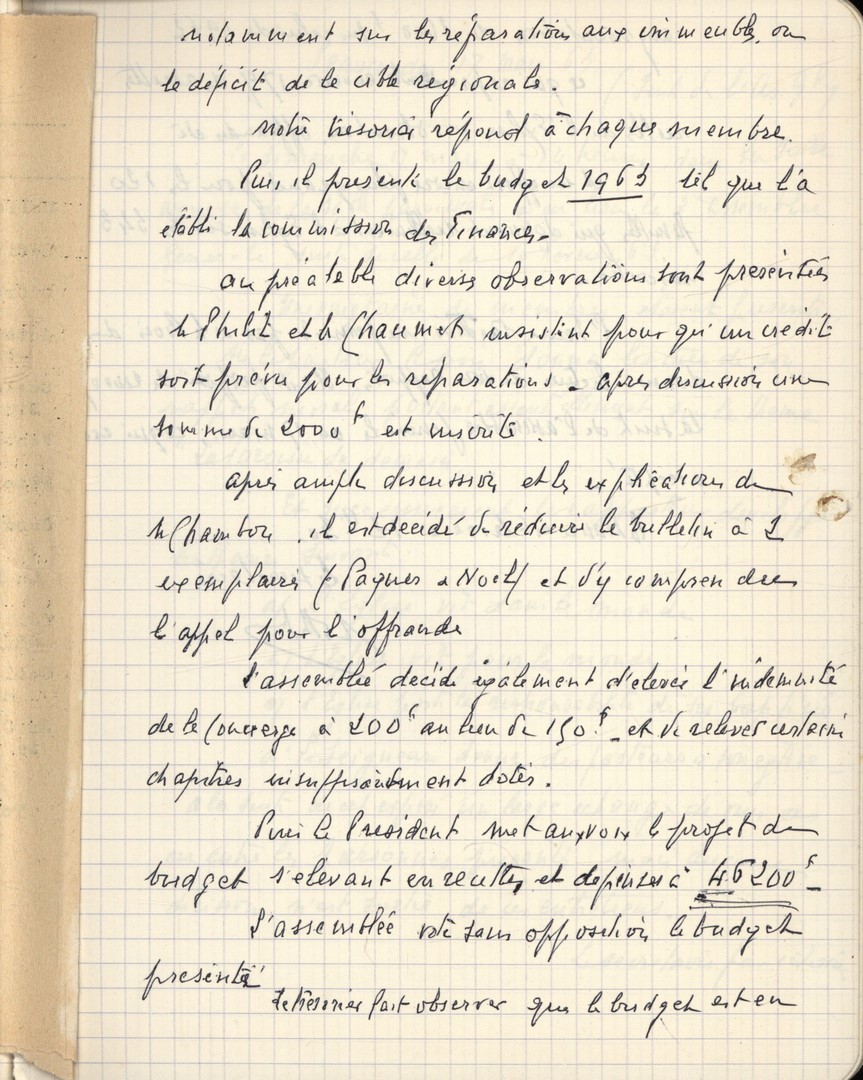 notamment sur les réparations aux immeubles, ou
le déficit de la cible régionale.
notre trésorier répond à chaque membre.
Puis il présente le budget 1963 tel que l'a
établi la commission des Finances.
au préalable diverses observations sont présentées
et M Chaumet insistent pour qu'un crédit
soit prévu pour les réparations - après discussion une
somme de 2000 f est inscrite.
après ample discussion et les explications de
M Chambon, il est décidé de réduire le bulletin à 2
exemplaires (Paques & Noël) et d'y comprendre
l'appel pour l'offrande
L'assemblée décide également d'élever l'indemnité
de la Concierge à 200 f au lieu de 150 f - et de relever certains
chapitres insuffisamment dotés.
Puis le Président met aux voix le projet de
budget s'élevant en recettes et dépenses à 46200 f -
L'assemblée vote sans opposition le budget
présenté
Le trésorier fait observer que le budget est en